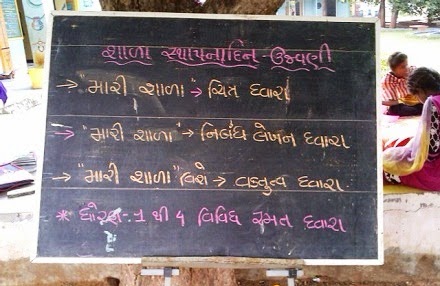 શાળા સ્થાપનાદિન ઉજવણી
→ "મારી શાળા" → ચિત્ર દ્વારા
→ "મારી શાળા" → નિબંધ લેખન દ્વારા
→ "મારી શાળા" વિશે → વક્તુત્વ દ્વારા
* ધોરણ-1 થી 4 વિવિધ રમત દ્વારા